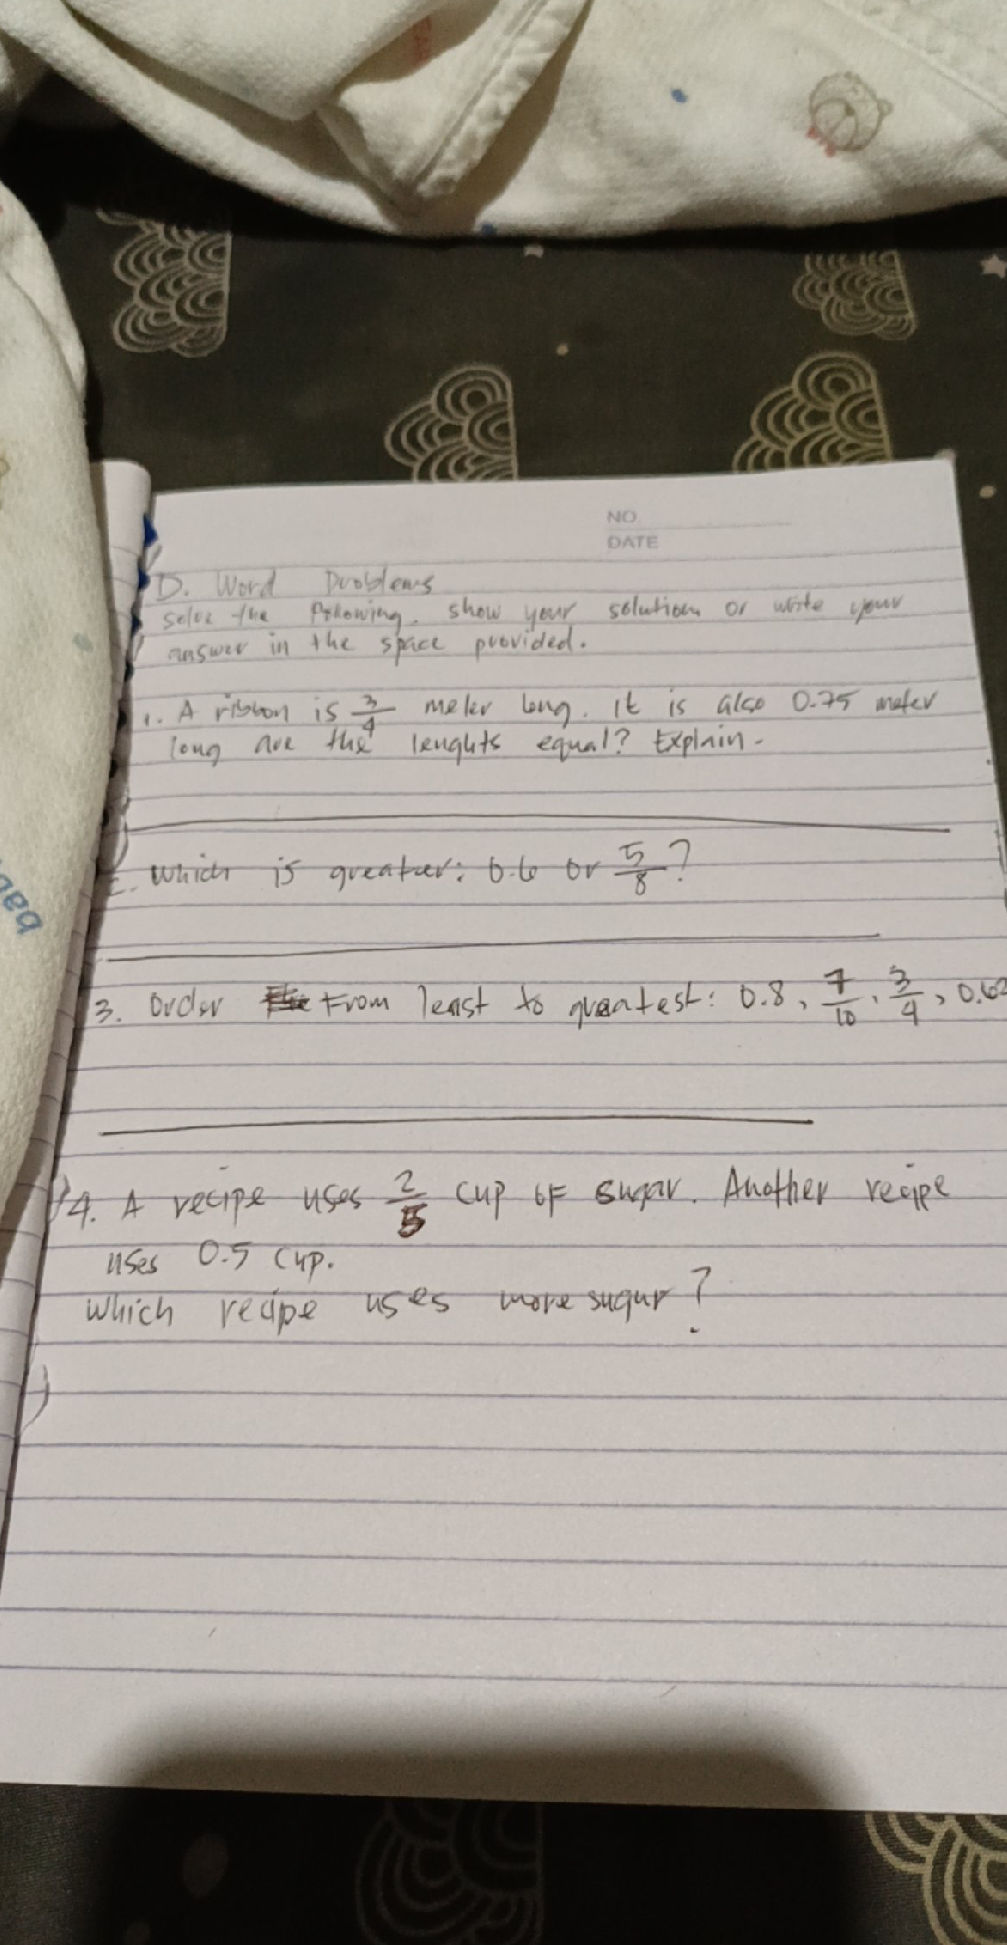 NO
DATE
D. Word Problems
solve the following. show your solution or write your
answer in the space provided.
1. A ribbon is 3/4 meter long. It is also 0.75 meter
long are the lenghts equal? Explain.
which is greater: 0.6 or 5/8?
3. Order from least to greatest: 0.8, 7/10, 3/4, 0.62
4. A recipe uses 2/5 cup of sugar. Another recipe
uses 0.5 cup.
which recipe uses more sugar?
bab